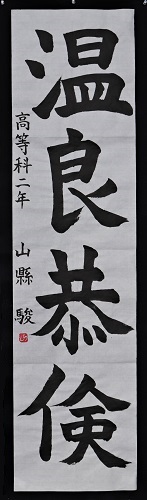 温良恭倹
高等科二年 山縣駿